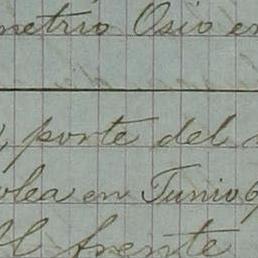 metrio Osio en
, porte del
olea en Junio 6
Al frente